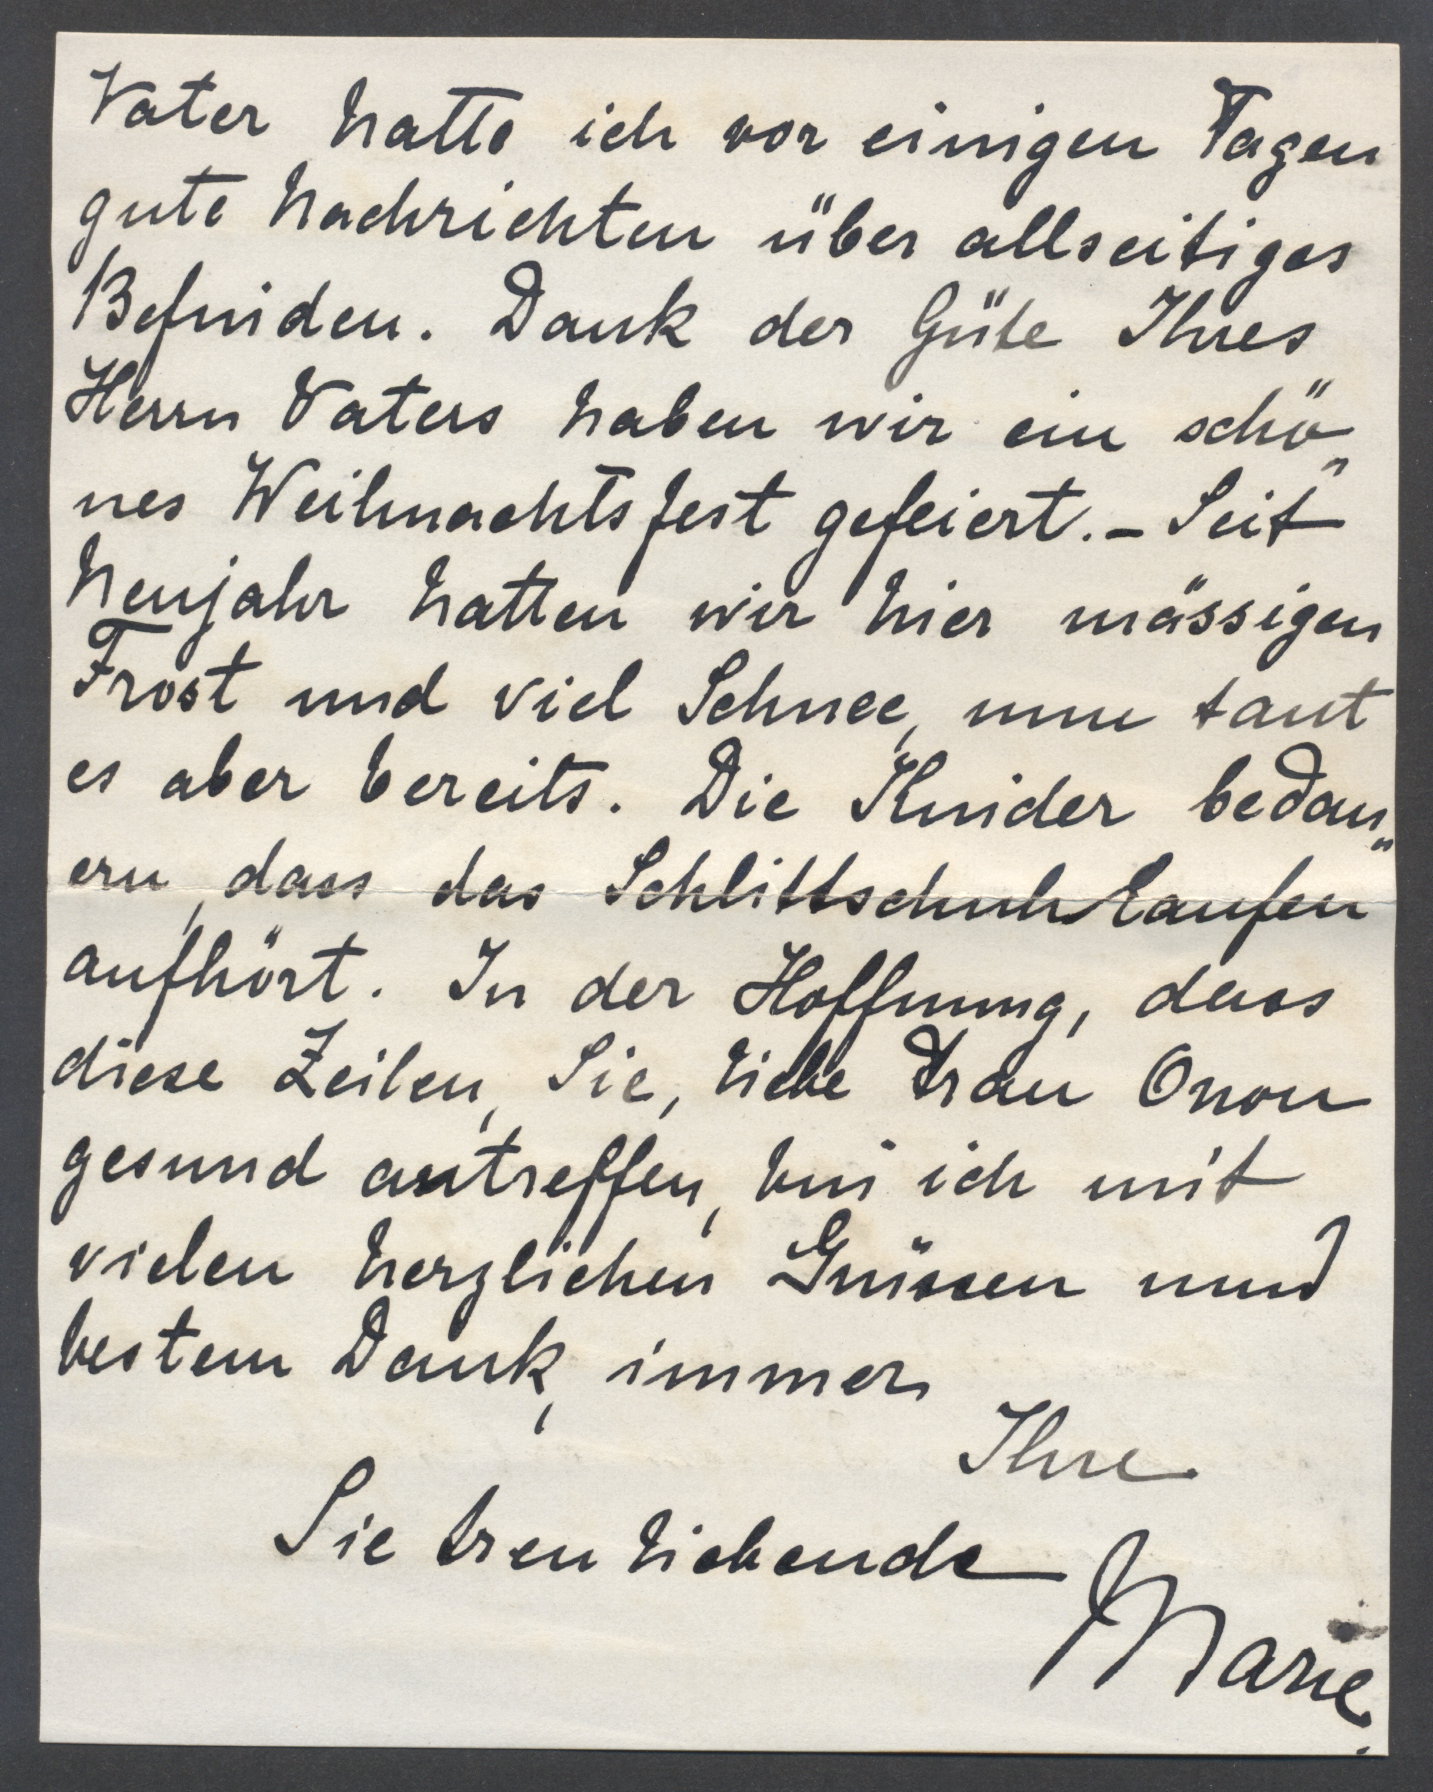 Vater hatte ich vor einigen Tagen
gute Nachrichten über allseitiges
Befinden. Dank der Güte Ihres
Herrn Vaters haben wir ein schö„
nes Weihnachtsfest gefeiert. – Seit
Neujahr hatten wir hier mässigen
Frost und viel Schnee, nun taut
es aber bereits. Die Kinder bedau„
ern, dass das Schlittschuhlaufen
aufhört. In der Hoffnung, dass
diese Zeilen, Sie, liebe Frau Onou
gesund antreffen, bin ich mit
vielen herzlichen Grüssen und
bestem Dank, immer
Ihre
Sie treu liebende
Marie.